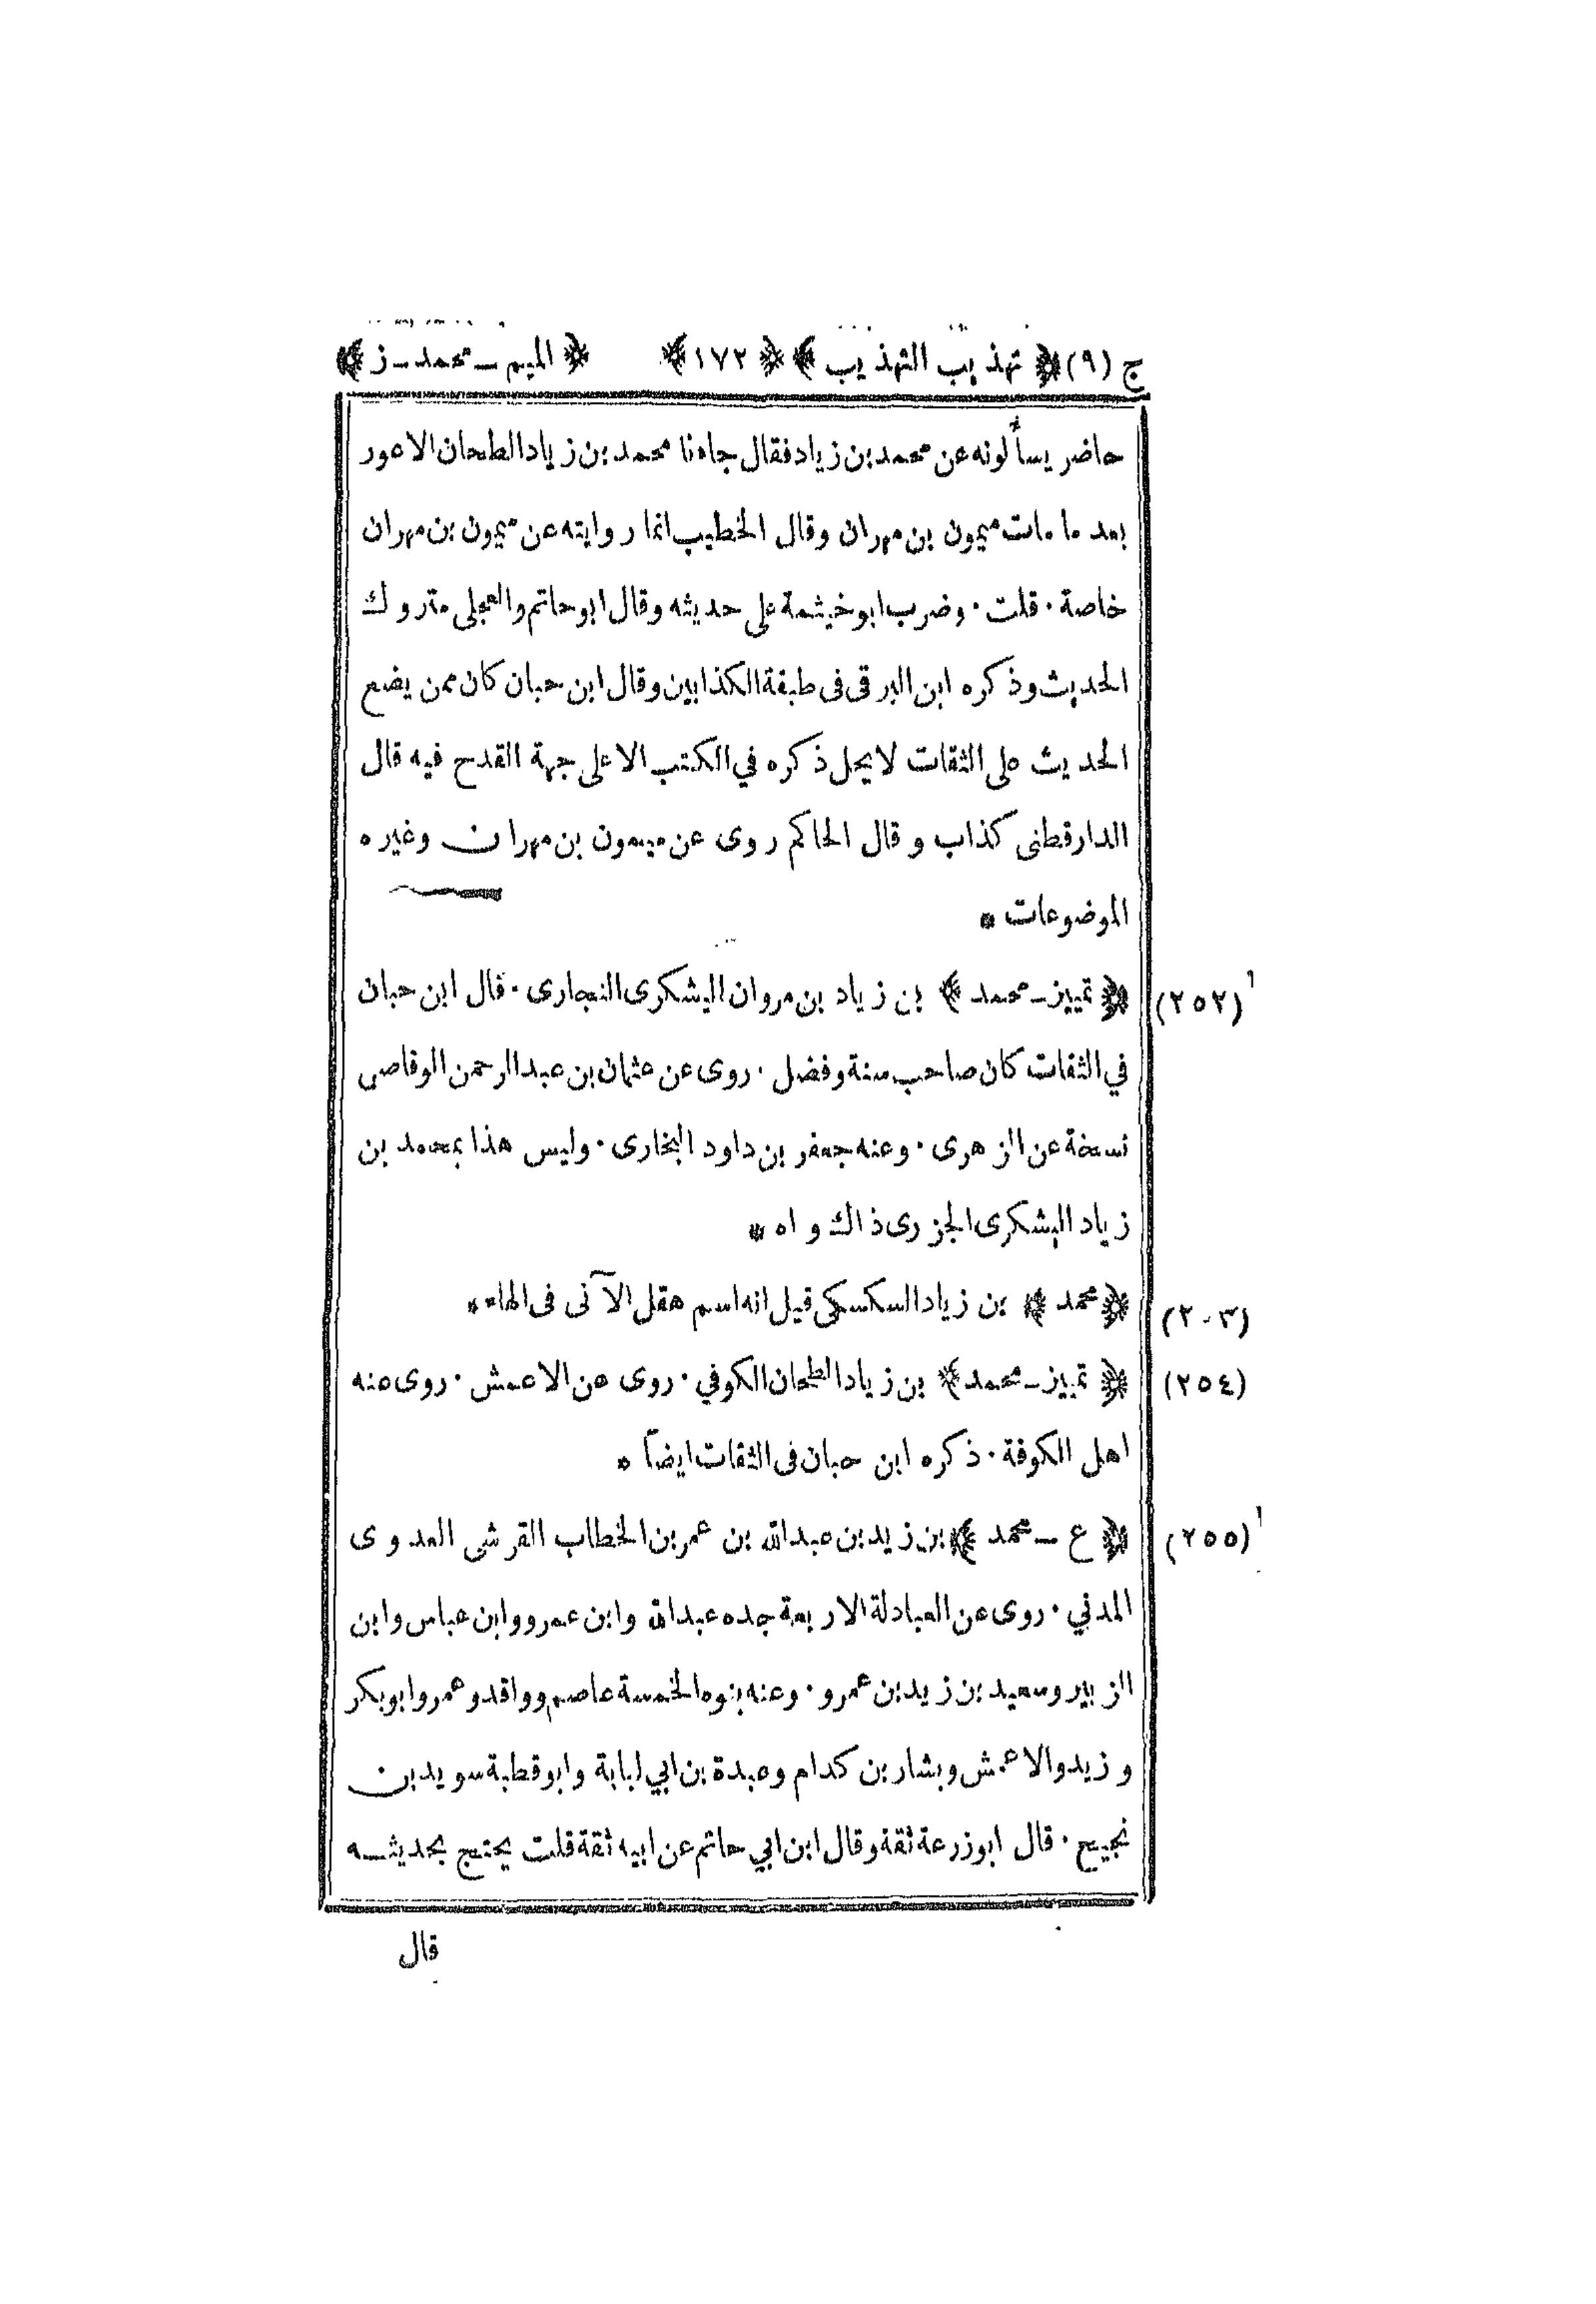 ج (٩) ﴿ تهذيب التهذيب ﴾ ﴿ ١٧٢ ﴾ ﴿ الميم ــ محمد ــ ز ﴾
حاضر يسألونه عن محمد بن زياد فقال جاءنا محمد بن زياد الطحان الاعور
بعد ما مات ميمون بن مهران وقال الخطيب انما روايته عن ميمون بن مهران
خاصة ٠ قلت ٠ وضرب ابو خيثمة على حديثه وقال ابو حاتم والعجلى متروك
الحديث وذكره ابن البرقى فى طبقة الكذابين وقال ابن حبان كان ممن يضع
الحديث على الثقات لا يحل ذكره في الكتب الا على جهة القدح فيه قال
الدارقطنى كذاب وقال الحاكم روى عن ميمون بن مهران وغيره
الموضوعات *
(٢٥٢) ﴿ تمييز ــ محمد ﴾ بن زياد بن مروان اليشكرى البخارى ٠ قال ابن حبان
في الثقات كان صاحب سنة وفضل ٠ روى عن عثمان بن عبد الرحمن الوقاصى
نسخة عن الزهرى ٠ وعنه جعفر بن داود البخارى ٠ وليس هذا بمحمد بن
زياد اليشكرى الجزرى ذاك واه *
(٢٠٣) ﴿ محمد ﴾ بن زياد السكسكى قيل انه اسم هقل الآتى فى الهاء *
(٢٥٤) ﴿ تمييز ــ محمد ﴾ بن زياد الطحان الكوفي ٠ روى عن الاعمش ٠ روى عنه
اهل الكوفة ٠ ذكره ابن حبان فى الثقات ايضاً *
(٢٥٥) ﴿ ع ــ محمد ﴾ بن زيد بن عبدالله بن عمر بن الخطاب القرشى العدوى
المدني ٠ روى عن العبادلة الاربعة جده عبدالله وابن عمرو وابن عباس وابن
الزبير وسعيد بن زيد بن عمرو ٠ وعنه بنوه الخمسة عاصم وواقد وعمر وابو بكر
وزيد والاعمش وبشار بن كدام وعبدة بن ابي لبابة وابو قطبة سويد بن
نجيح ٠ قال ابو زرعة ثقة وقال ابن ابي حاتم عن ابيه ثقة قلت يحتج بحديثه
قال